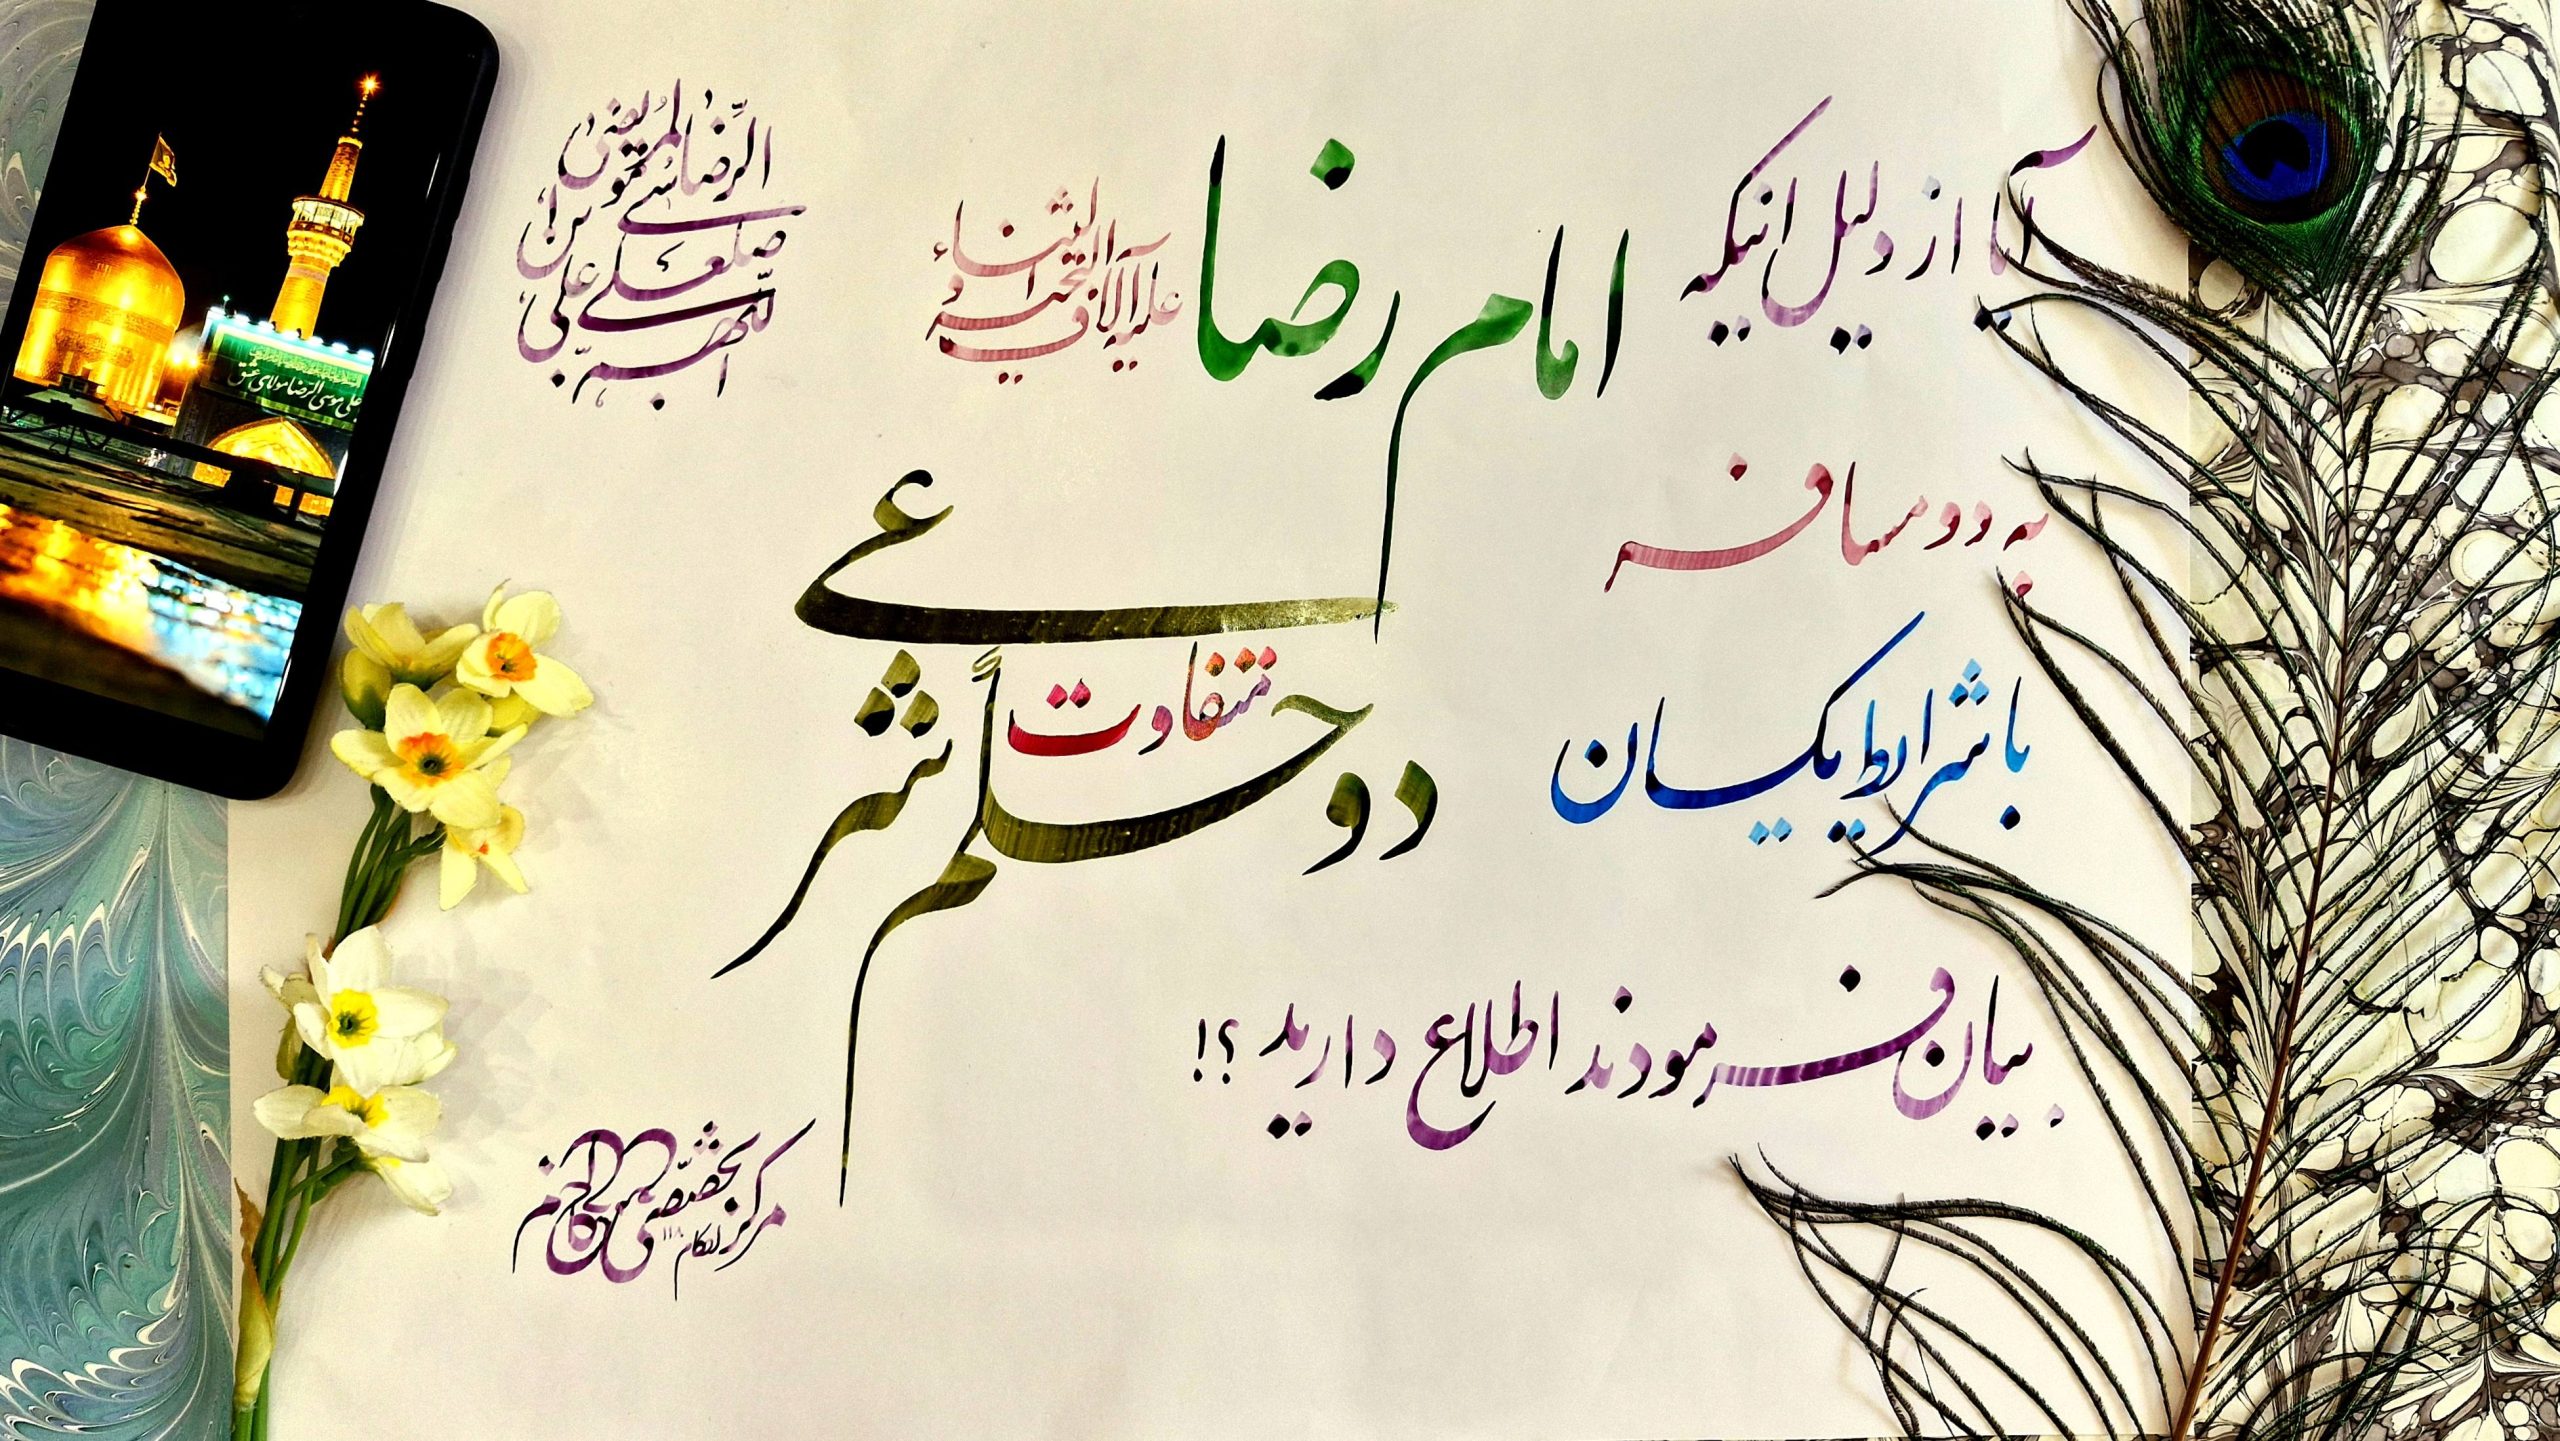 آیا از دلیل اینکه
امام رضا
علیه آلاف التحیه و الثناء
به دو مسافر
با شرایط یکسان
دو حکم شرعی
متفاوت
بیان فرمودند اطلاع دارید ؟!
اللهم صل علی علی بن موسی الرضا المرتضی
علی موسی الرضا مولای عشق
مرکز تخصصی
احکام ۱۱۸